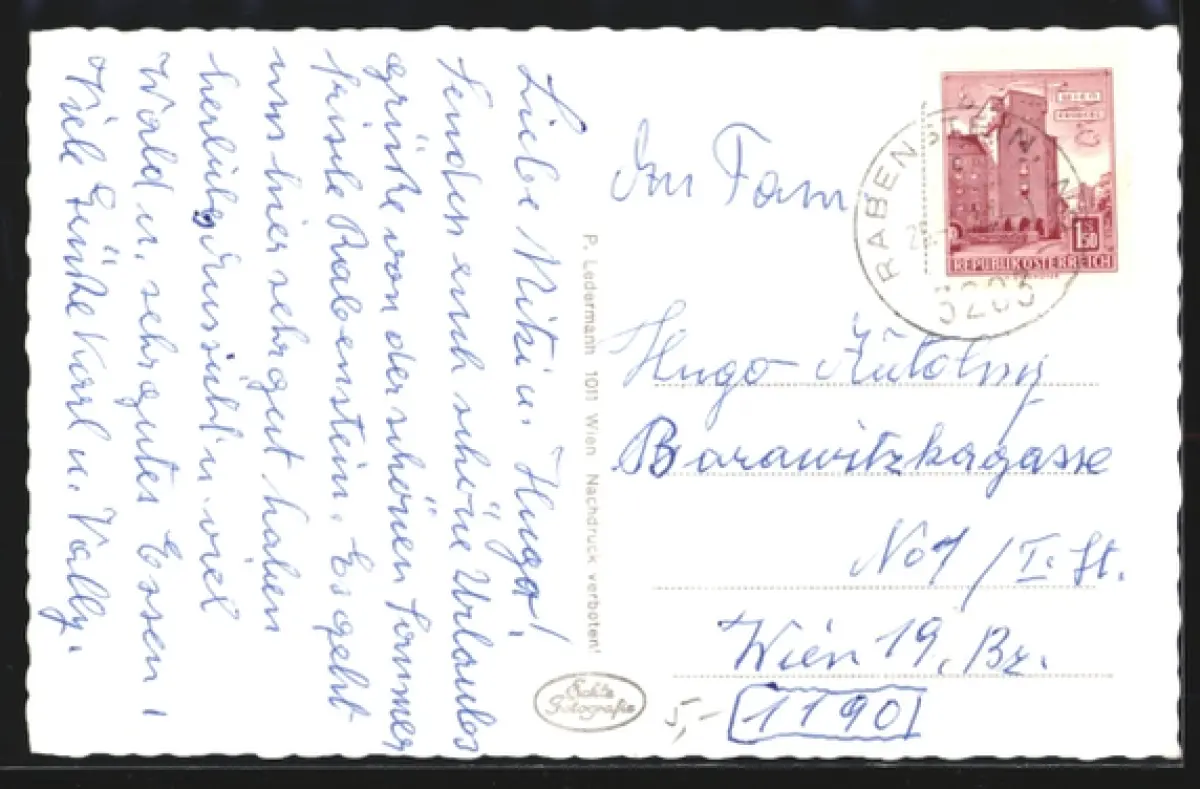 Liebe Mitzi u. Hugo!
Senden euch schöne Urlaubs
grüße von der schönen Sommer
frische Rabenstein. Es geht
uns hier sehr gut haben
herliche Aussicht u viel
Wald u. sehr gutes Essen!
Viele Grüße Karl u. Vally.
P. Ledermann 1011 Wien Nachdruck verboten!
Echte
Fotografie
RABENSTEIN
3203
WIEN
1.50
REPUBLIK ÖSTERREICH
An Fam
Hugo
Borawitzkagasse
No 7/I. St.
Wien 19, Bz.
1190
5,-